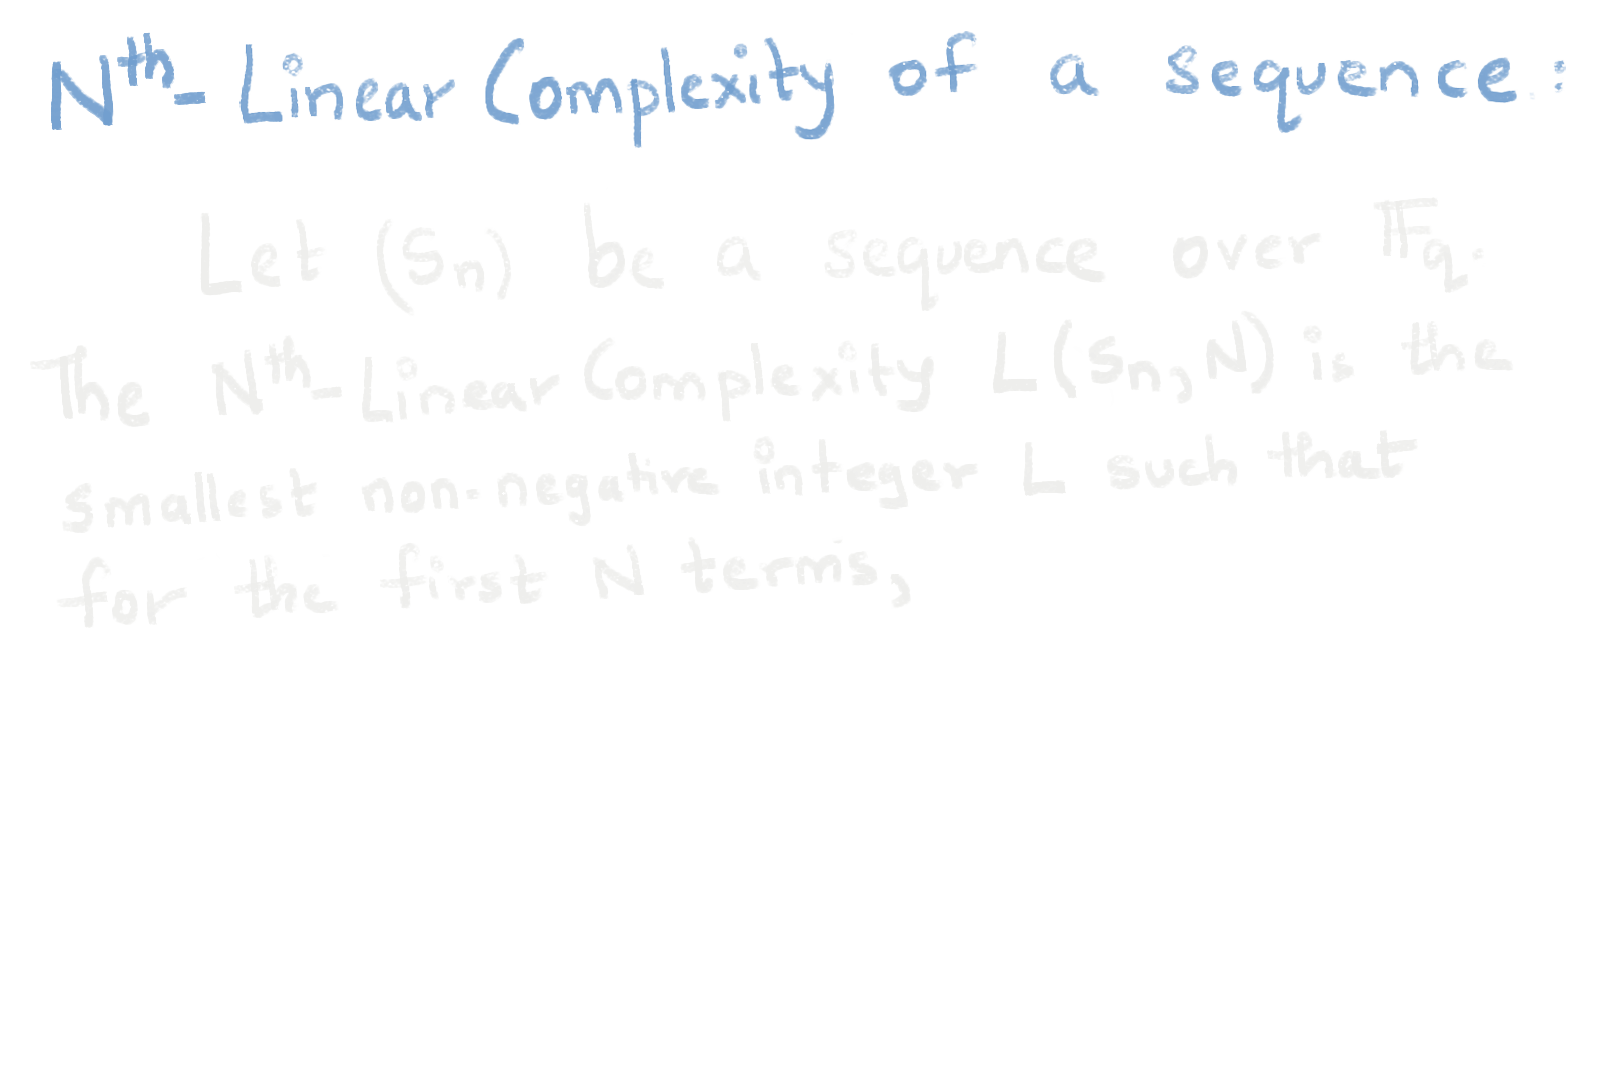 Nth- Linear Complexity of a sequence:
Let (Sn) be a sequence over 𝔽q.
The Nth-Linear Complexity L(Sn,N) is the
smallest non-negative integer L such that
for the first N terms,